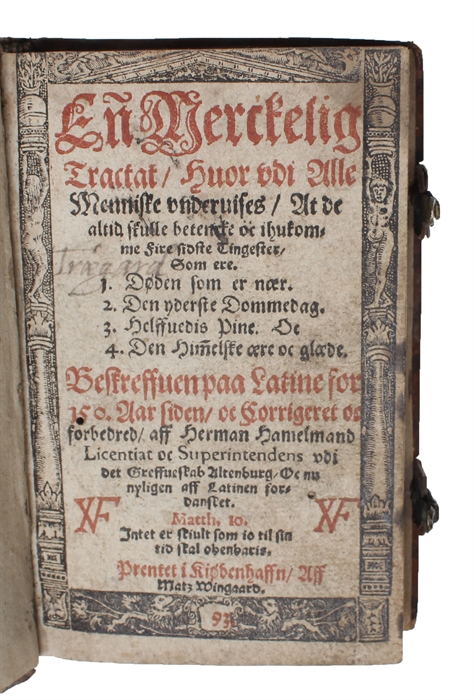 Eñ Merckelig
Tractat/ Huor vdi Alle
Menniske vnderuises/ At de
altid skulle betencke oc ihukom-
me Fire sidste Tingester/
Som ere.
1. Døden som er nær.
2. Den yderste Dommedag.
3. Helffuedis Pine. Oc
4. Den Him̃elske ære oc glæde.
Beskreffuen paa Latine for
150. Aar siden/ oc Corrigeret oc
forbedred/ aff Herman Hamelmand
Licentiat oc Superintendens vdi
det Greffueskab Altenburg/ Oc nu
nyligen aff Latinen for-
dansket.
Matth. 10.
Intet er skiult som io til sin
tid skal obenbaris.
Prentet i Kiøbenhaffn/ Aff
Matz Wingaard.
93